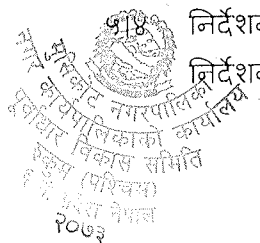 ५।४ निर्देशन
निर्देशन
मुसिकोट नगरपालिका
नगर कार्यपालिकाको कार्यालय
पूर्वाधार विकास समिति
रुकुम (पश्चिम)
प्रदेश नेपाल
२०७३